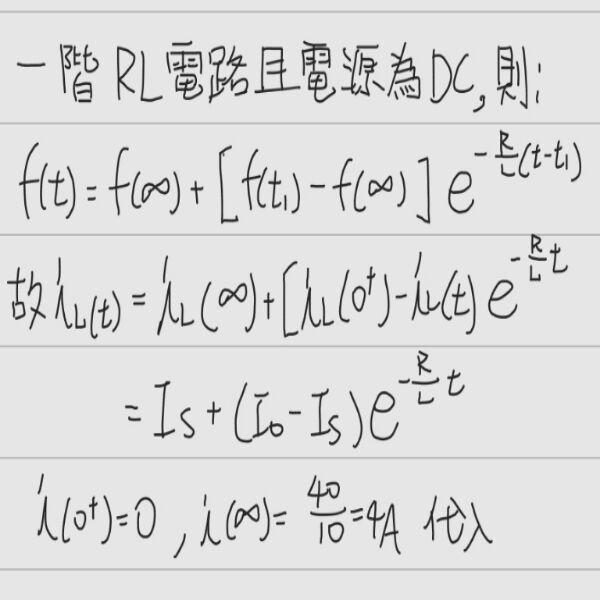 一階RL電路且電源為DC,則:
f(t)=f(∞)+[f(t₁)-f(∞)]e^{-R/L(t-t₁)}
故i_L(t)=i_L(∞)+[i_L(0⁺)-i_L(t)e^{-R/L t}
=I_S+(I_0-I_S)e^{-R/L t}
i(0⁺)=0,i(∞)=40/10=4A 代入